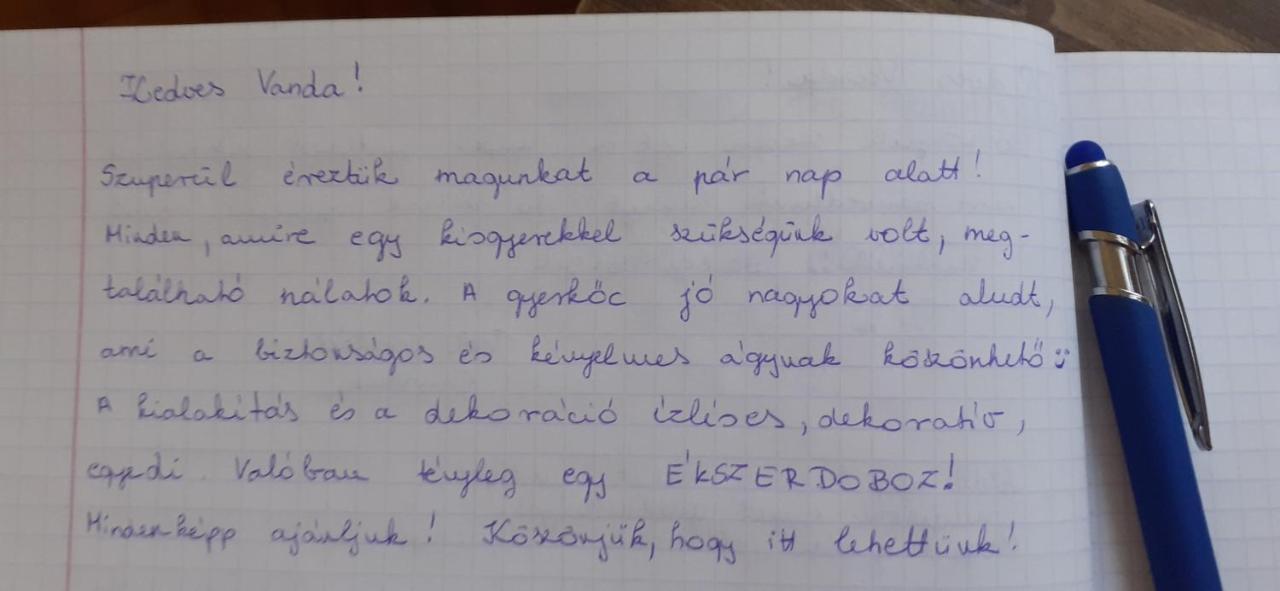 Kedves Vanda!
Szuperül éreztük magunkat a pár nap alatt!
Minden, amire egy kisgyerekkel szükségünk volt, meg-
található nálatok. A gyerkőc jó nagyokat aludt,
ami a biztonságos és kényelmes ágynak köszönhető :)
A kialakítás és a dekoráció ízléses, dekoratív,
egyedi. Valóban tényleg egy ÉKSZERDOBOZ!
Mindenképp ajánljuk! Köszönjük, hogy itt lehettünk!